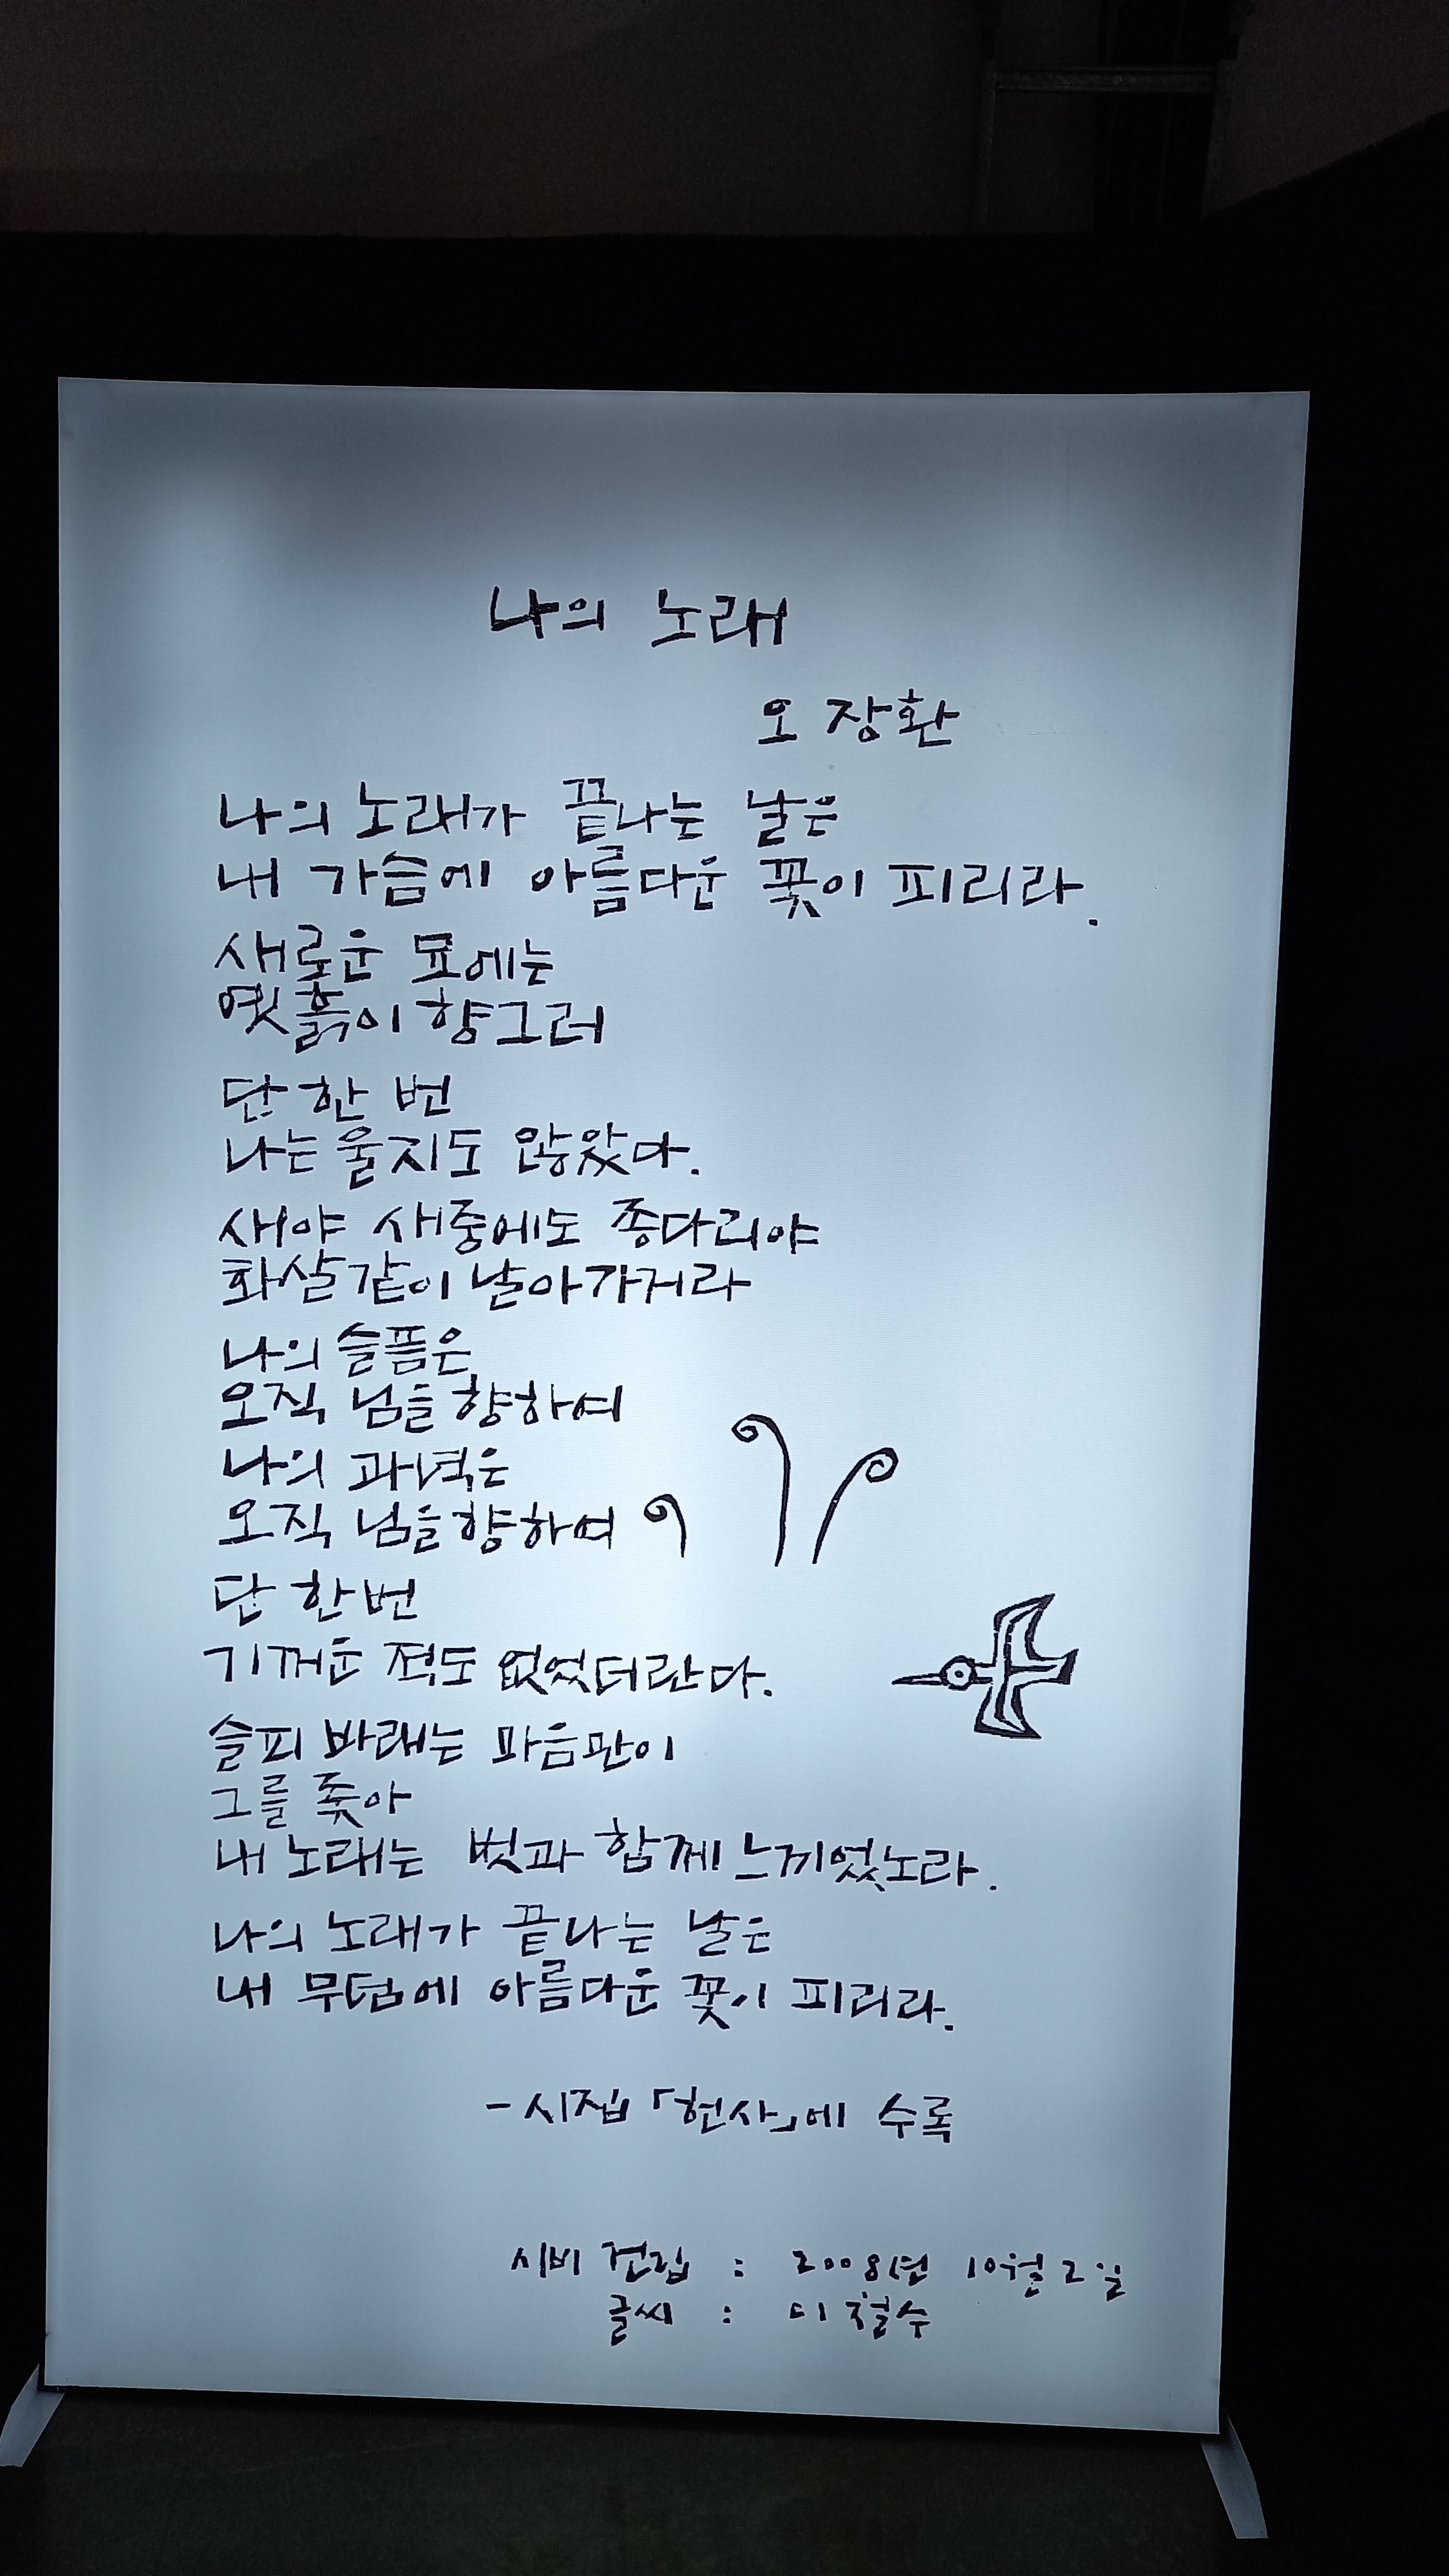 나의 노래
오 장환
나의 노래가 끝나는 날은
내 가슴에 아름다운 꽃이 피리라.
새로운 묘에는
옛흙이 향그러
단 한 번
나는 울지도 않았다.
새야 새중에도 종다리야
화살같이 날아가거라
나의 슬픔은
오직 님을 향하여
나의 과녁은
오직 님을 향하여
단 한번
기꺼운 적도 없었더란다.
슬피 바래는 마음만이
그를 좇아
내 노래는 벗과 함께 느끼었노라.
나의 노래가 끝나는 날은
내 무덤에 아름다운 꽃이 피리라.
-시집 「헌사」에 수록
시비 건립 : 2008년 10월 2일
글씨 : 이철수